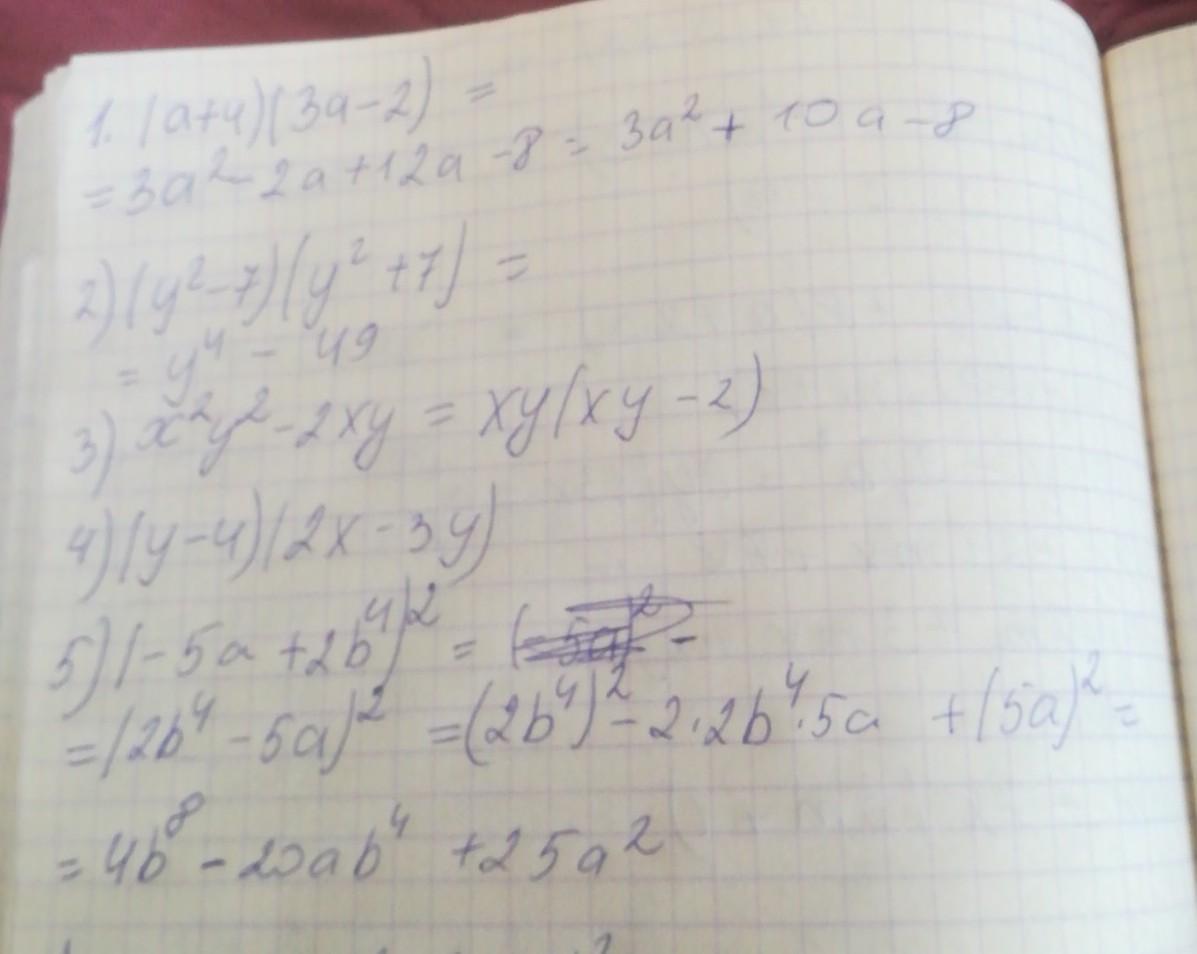 1. (a+4)(3a-2) =
= 3a² - 2a + 12a - 8 = 3a² + 10a - 8
2) (y²-7)(y²+7) =
= y⁴ - 49
3) x²y² - 2xy = xy(xy - 2)
4) (y-4)(2x-3y)
5) (-5a + 2b⁴)² = -
= (2b⁴ - 5a)² = (2b⁴)² - 2·2b⁴·5a + (5a)² =
= 4b⁸ - 20ab⁴ + 25a²